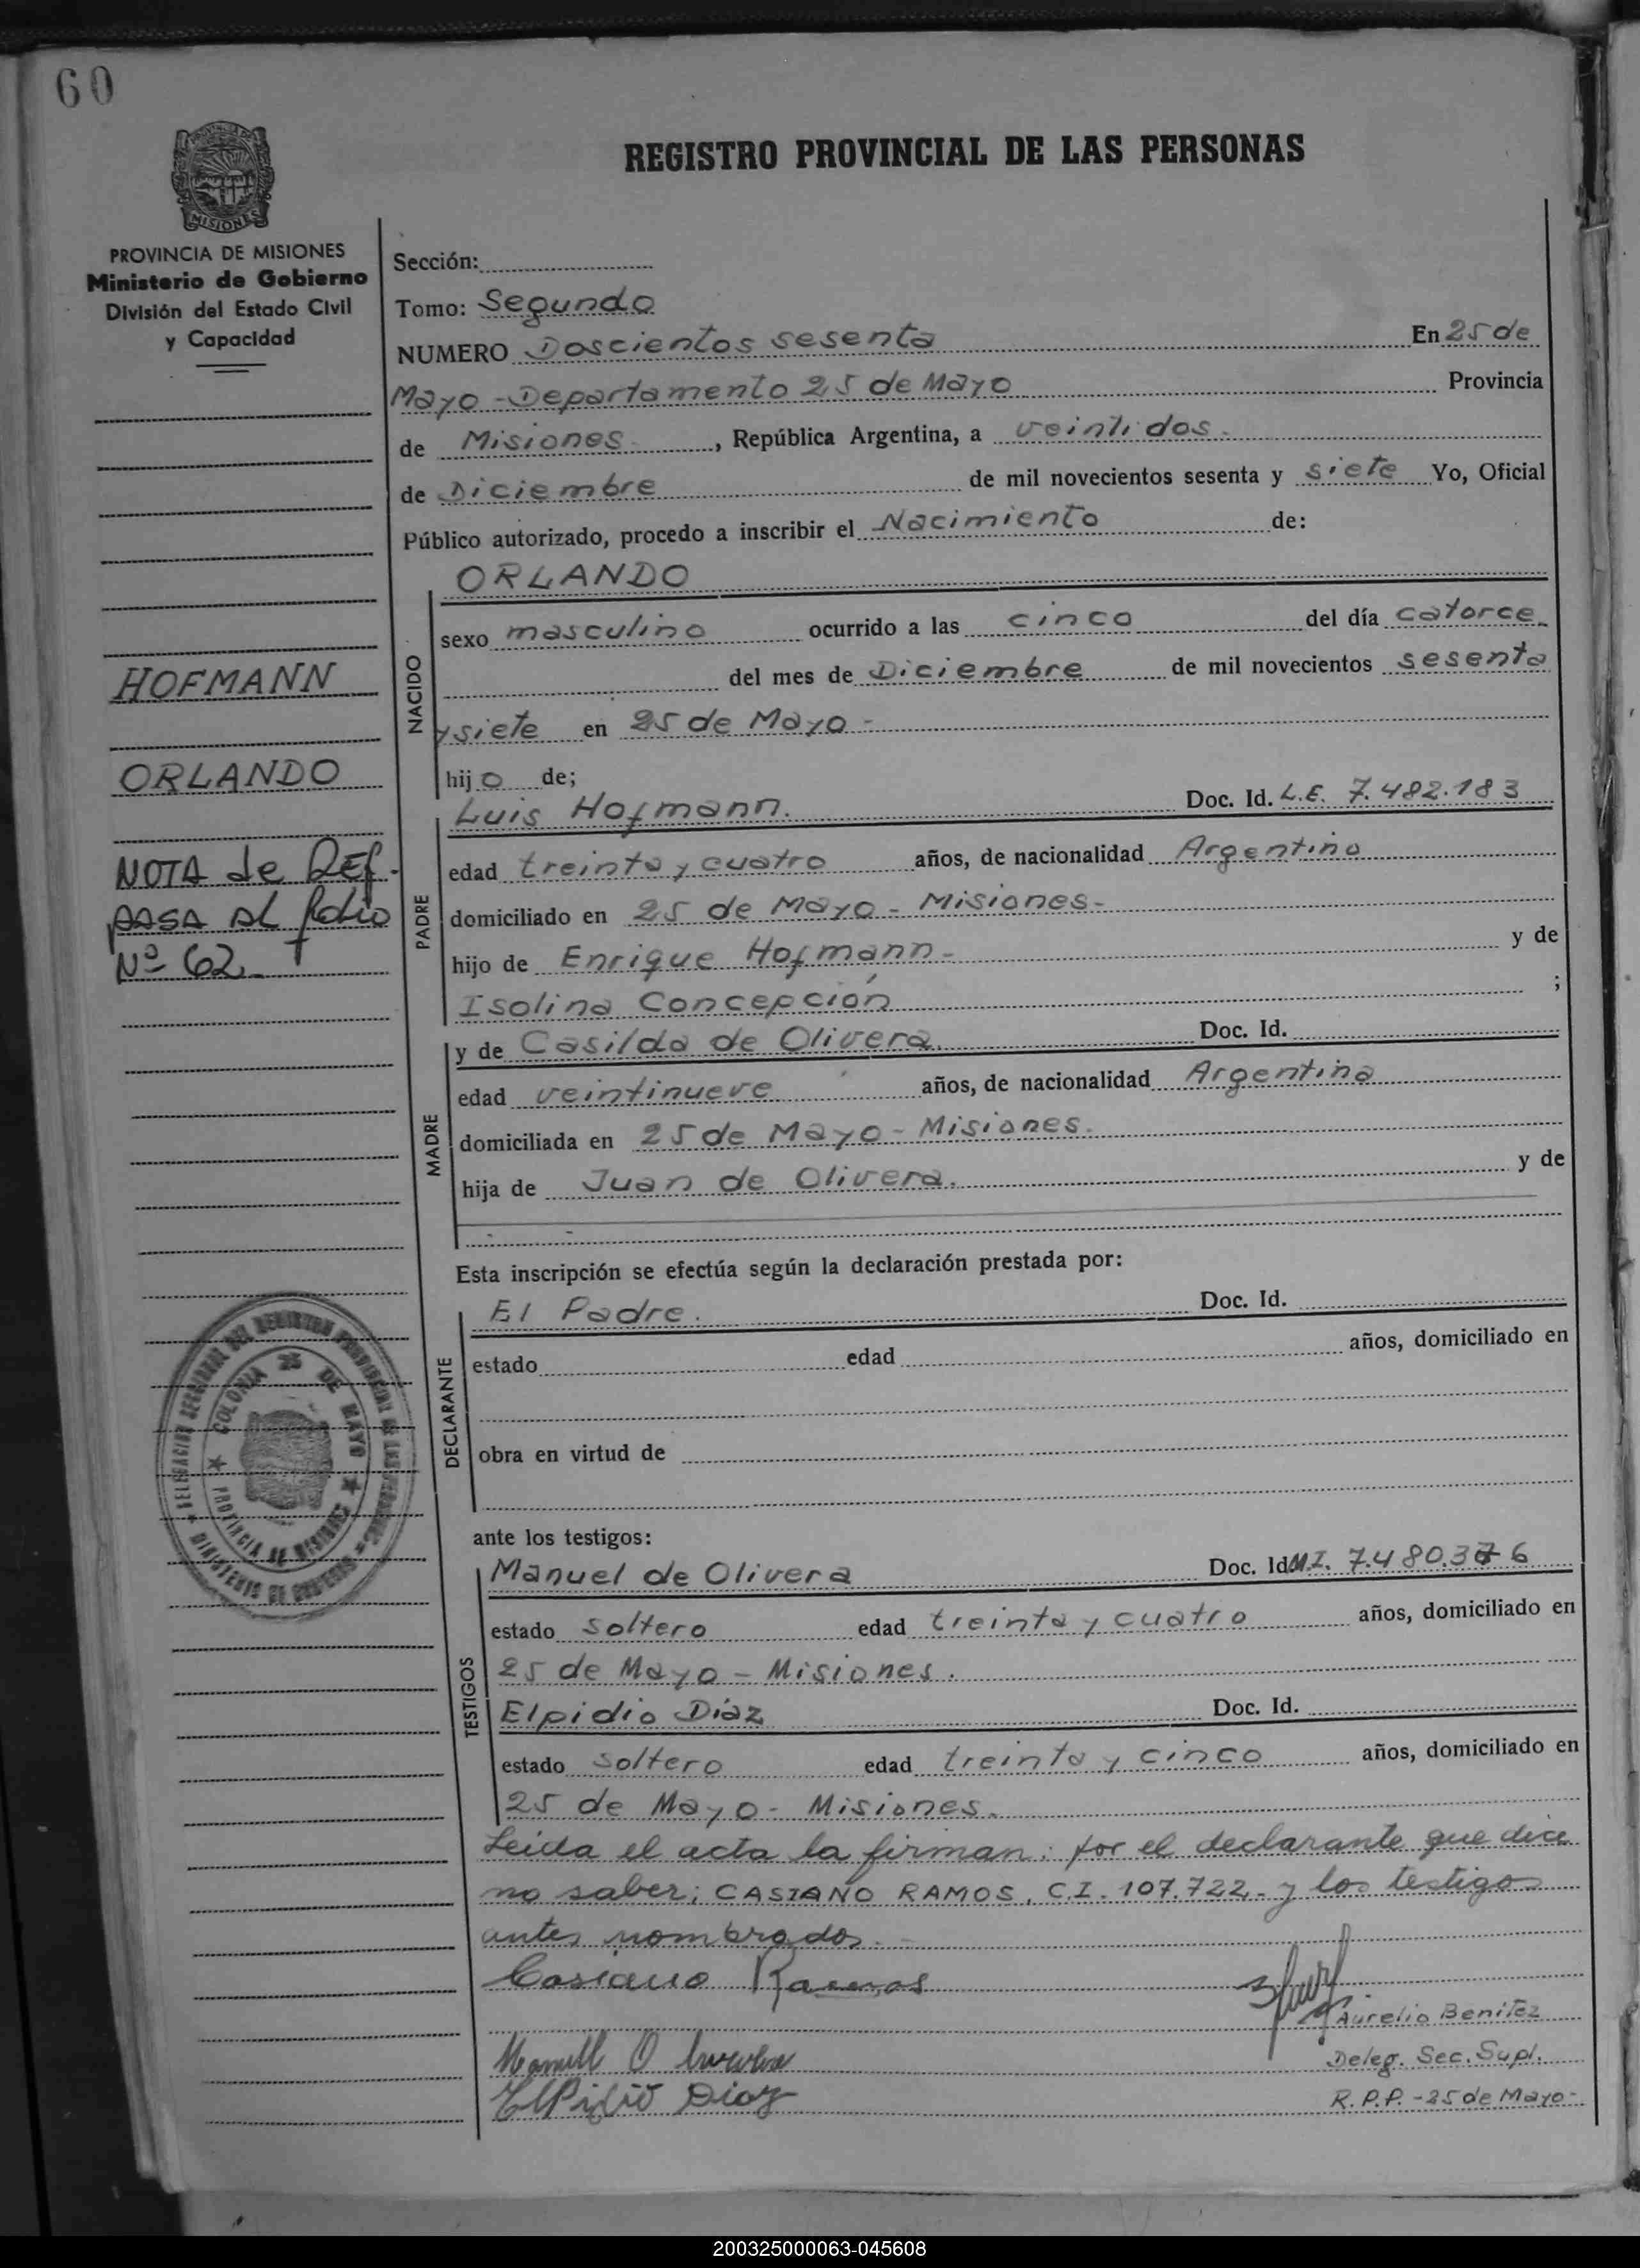 60
REGISTRO PROVINCIAL DE LAS PERSONAS
MISIONES
PROVINCIA DE MISIONES
Ministerio de Gobierno
División del Estado Civil
y Capacidad
Sección:
Tomo: Segundo
NUMERO Doscientos sesenta En 25 de
Mayo - Departamento 25 de Mayo Provincia
de Misiones , República Argentina, a veintidos.
de Diciembre de mil novecientos sesenta y siete Yo, Oficial
Público autorizado, procedo a inscribir el Nacimiento de:
HOFMANN
ORLANDO
NOTA de REF.
PASA AL folio
Nº 62
NACIDO
ORLANDO
sexo masculino ocurrido a las cinco del día catorce
del mes de Diciembre de mil novecientos sesenta
y siete en 25 de Mayo -
hijo de;
PADRE
Luis Hofmann. Doc. Id. L.E. 7.482.183
edad treinta y cuatro años, de nacionalidad Argentina
domiciliado en 25 de Mayo - Misiones -
hijo de Enrique Hofmann - y de
Isolina Concepción ;
MADRE
y de Casilda de Olivera. Doc. Id.
edad veintinueve años, de nacionalidad Argentina
domiciliada en 25 de Mayo - Misiones.
hija de Juan de Olivera. y de
Esta inscripción se efectúa según la declaración prestada por:
DECLARANTE
El Padre. Doc. Id.
estado edad años, domiciliado en
obra en virtud de
COLONIA 25 DE MAYO
PROVINCIA DE MISIONES
ante los testigos:
TESTIGOS
Manuel de Olivera Doc. Id M.I. 7.480.376
estado soltero edad treinta y cuatro años, domiciliado en
25 de Mayo - Misiones.
Elpidio Díaz Doc. Id.
estado soltero edad treinta y cinco años, domiciliado en
25 de Mayo - Misiones.
Leida el acta la firman: por el declarante que dice
no saber; CASIANO RAMOS, C.I. 107.722 - y los testigos
antes nombrados. -
Casiano Ramos
Aurelio Benitez
Deleg. Sec. Supl.
R.P.P. - 25 de Mayo -
ElPidio Diaz
200325000063-045608